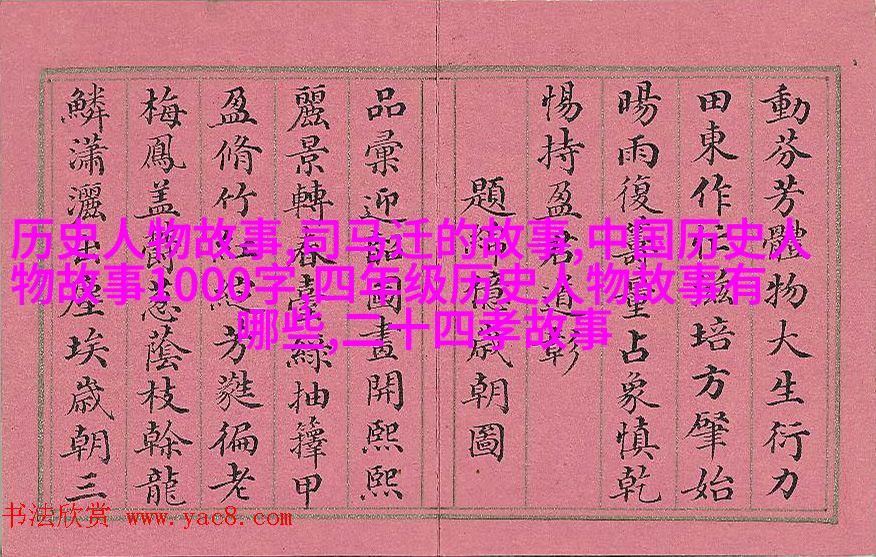 動芬芳體物大生衍力
田東作茲培方肇始
暘雨復占象慎乾
惕持盈君道彰
題歲朝圖
品彙迎韶圖畫開熙熙
麗景轉春臺綠抽籜甲
盈脩竹紅綻芳蕤徧老
梅鳳蓋蔭枝榦龍
鱗瀟灑出塵埃歲朝三
历史人物故事,司马迁的故事,中国历史人
物故事1000字,四年级历史人物故事有
哪些,二十四孝故事
书法欣赏 www.yac8.com